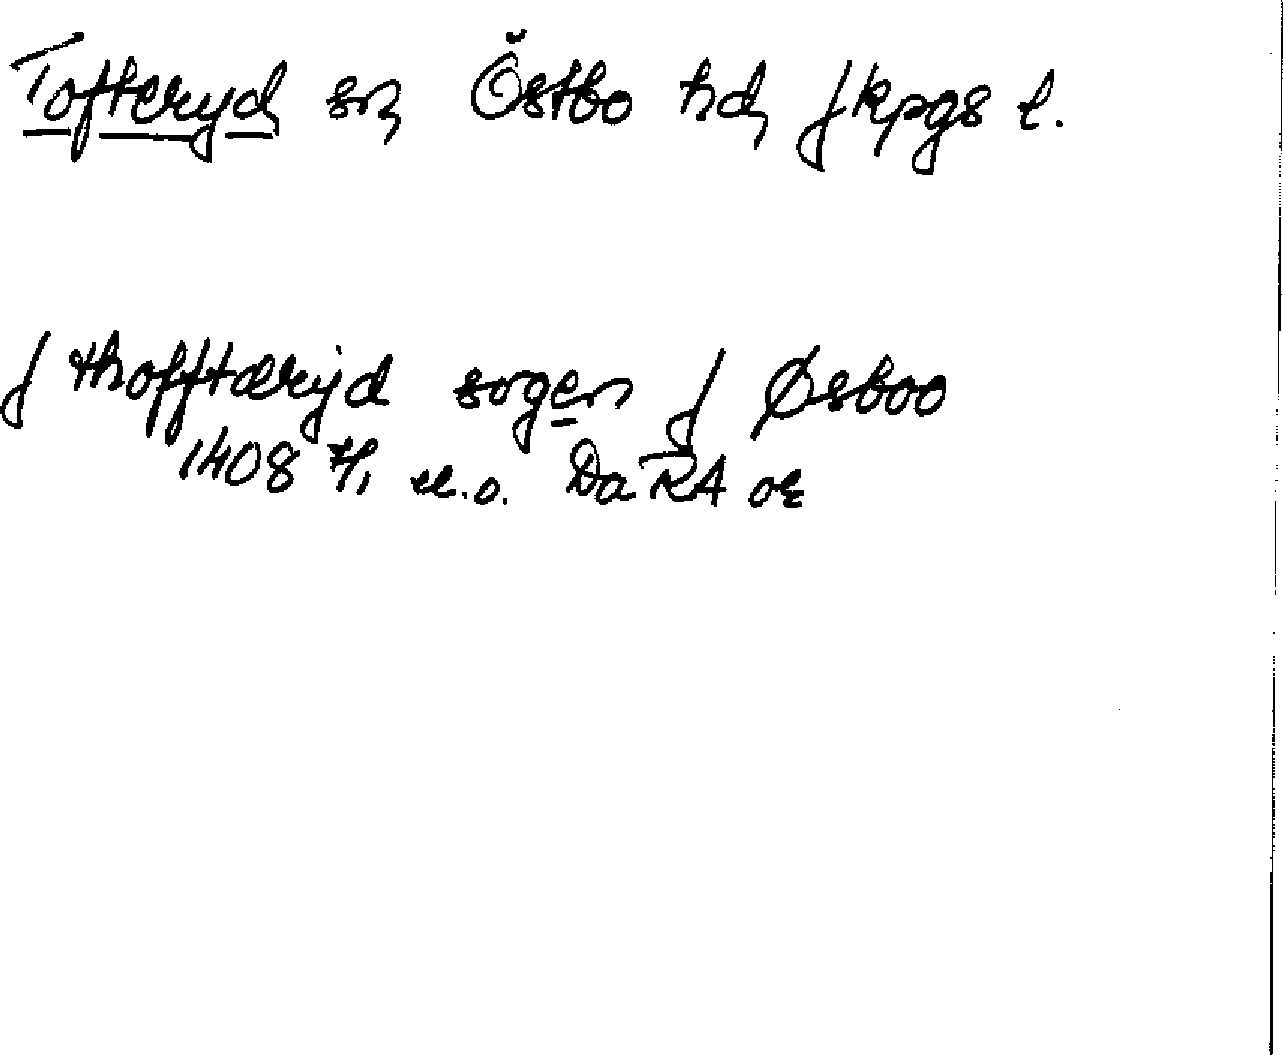 Tofteryd sn, Östbo hd, Jkpgs l.
J thofftæryd sogen J Østboo
1408 7/1 u.o. Da RA or